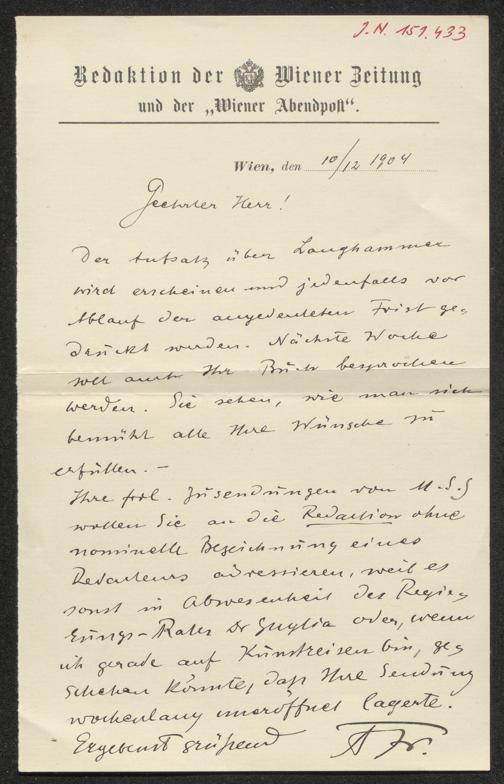 J.N. 151.433
Redaktion der Wiener Zeitung
und der „Wiener Abendpost“.
Wien, den 10/12 1904
Geehrter Herr!
Der Aufsatz über Langhammer
wird erscheinen und jedenfalls vor
Ablauf der angedeuteten Frist ge-
druckt werden. Nächste Woche
soll auch Ihr Buch besprochen
werden. Sie sehen, wie man sich
bemüht alle Ihre Wünsche zu
erfüllen. –
Ihre frdl. Zusendungen von M.S.S
wollen Sie an die Redaction ohne
nominelle Bezeichnung eines
Redacteurs adressieren, weil es
sonst in Abwesenheit des Regie-
rungs-Rates Dr Guglia oder, wenn
ich gerade auf Kunstreisen bin, ge-
schehen könnte, daß Ihre Sendung
wochenlang uneröffnet lagerte.
Ergebenst grüßend